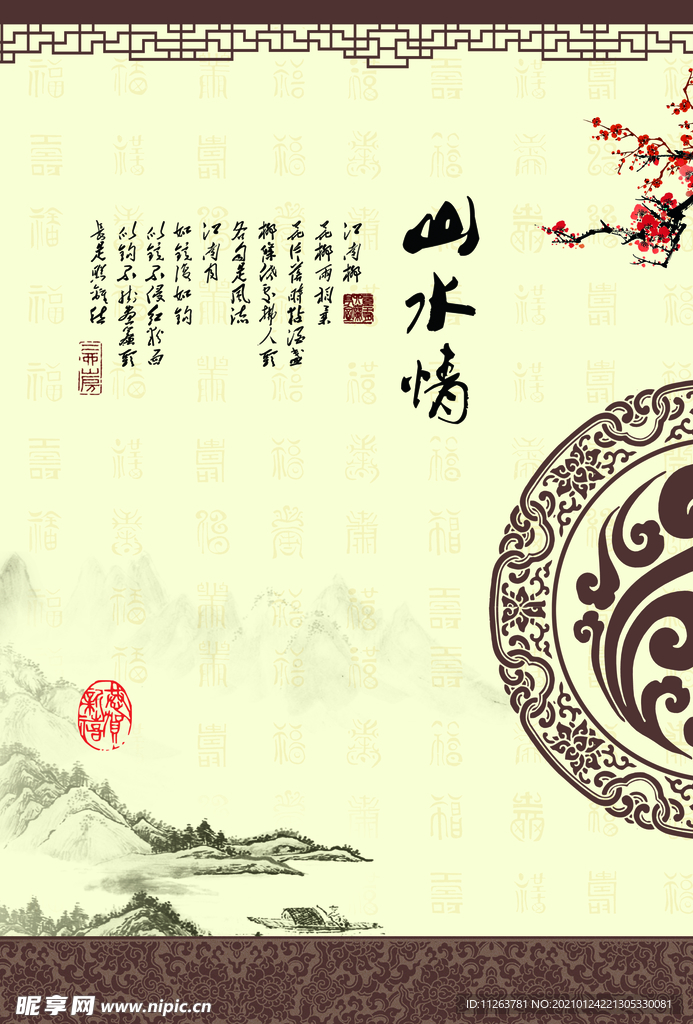 山水情
江南柳
花柳两相柔
花片落时粘酒盏
柳条低处拂人头
各自是风流
江南月
如镜复如钩
似镜不侵红粉面
似钩不挂画帘头
长是照离愁
恭賀新禧
昵享网 www.nipic.cn
ID:11263781 NO:20210124221305330081